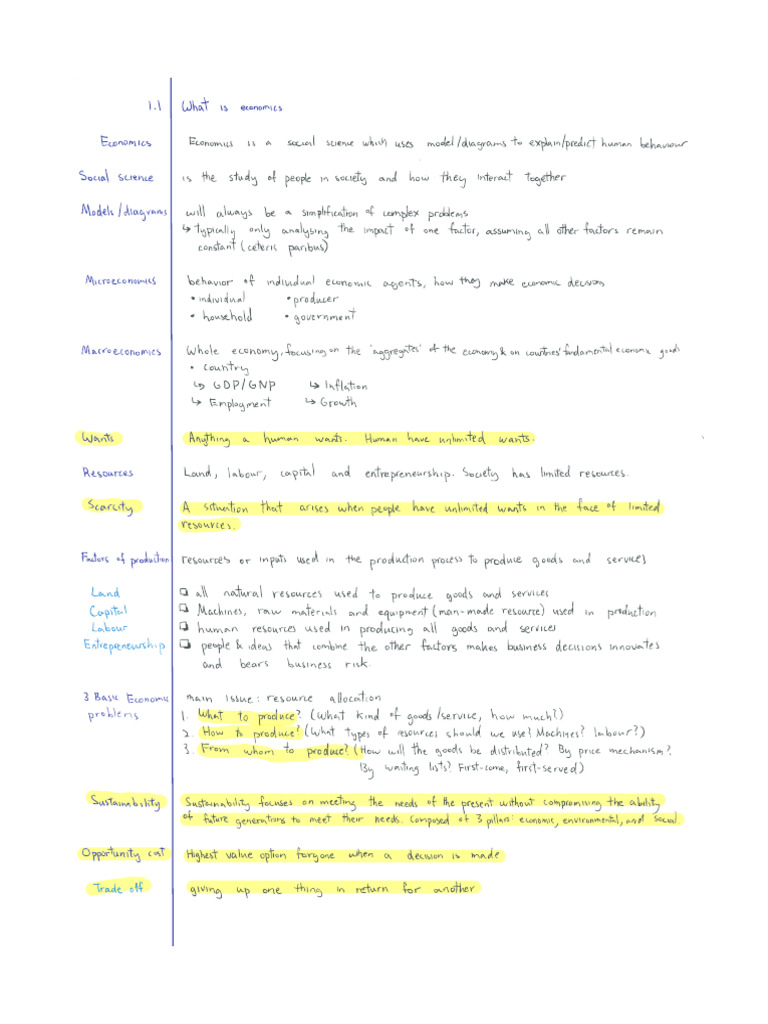 1.1 What is economics
Economics Economics is a social science which uses model/diagrams to explain/predict human behaviour
Social science is the study of people in society and how they interact together
Models/diagrams will always be a simplification of complex problems
↳ typically only analysing the impact of one factor, assuming all other factors remain
constant (ceteris paribus)
Microeconomics behavior of individual economic agents, how they make economic decisions
• individual • producer
• household • government
Macroeconomics Whole economy, focusing on the 'aggregates' of the economy & on countries' fundamental economic goals
• country
↳ GDP/GNP ↳ Inflation
↳ Employment ↳ Growth
Wants Anything a human wants. Human have unlimited wants.
Resources Land, labour, capital and entrepreneurship. Society has limited resources.
Scarcity A situation that arises when people have unlimited wants in the face of limited
resources.
Factors of production resources or inputs used in the production process to produce goods and services
Land ❑ all natural resources used to produce goods and services
Capital ❑ Machines, raw materials and equipment (man-made resource) used in production
Labour ❑ human resources used in producing all goods and services
Entrepreneurship ❑ people & ideas that combine the other factors makes business decisions innovates
and bears business risk.
3 Basic Economic main issue: resource allocation
problems 1. What to produce? (What kind of goods/service, how much?)
2. How to produce? (What types of resources should we use? Machines? labour?)
3. From whom to produce? (How will the goods be distributed? By price mechanism?
By waiting lists? First-come, first-served)
Sustainability Sustainability focuses on meeting the needs of the present without compromising the ability
of future generations to meet their needs. Composed of 3 pillars: economic, environmental, and social.
Opportunity cost Highest value option forgone when a decision is made
Trade off giving up one thing in return for another